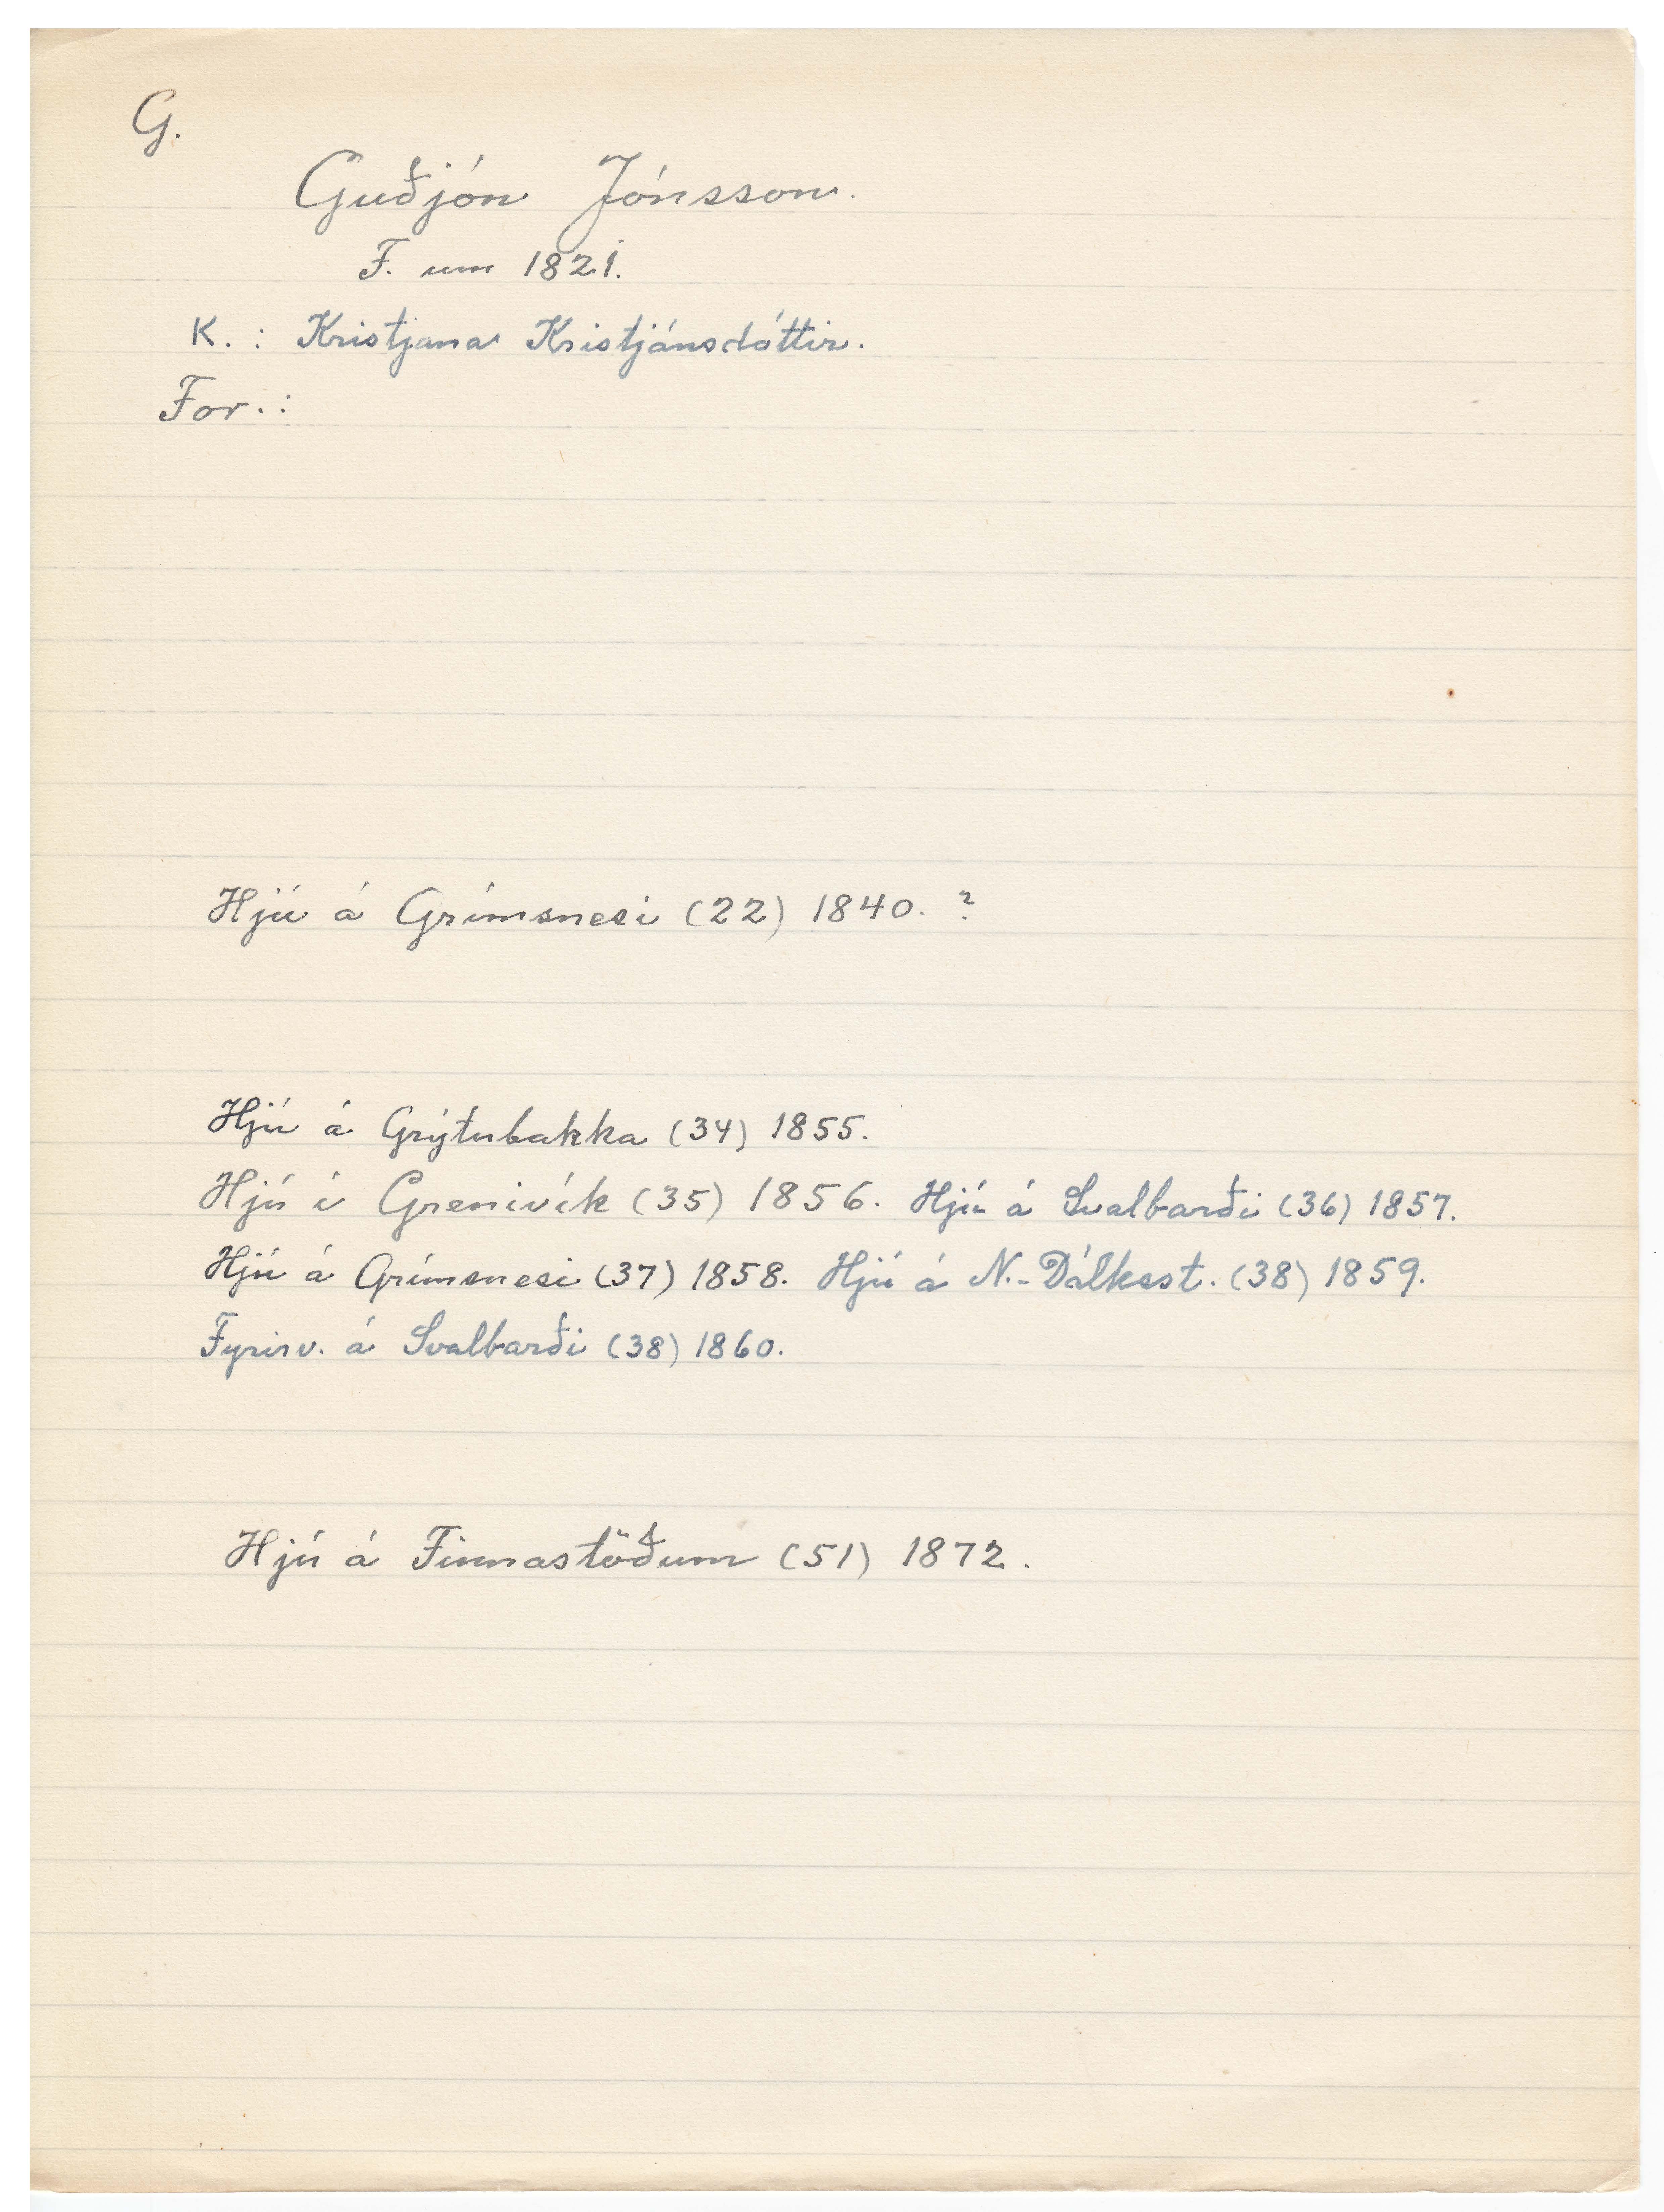 G.
Guðjón Jónsson.
F. um 1821.
K. : Kristjana Kristjánsdóttir.
For. :
Hjú á Grímsnesi (22) 1840. ?
Hjú á Grýtubakka (34) 1855.
Hjú í Grenivík (35) 1856. Hjú á Svalbarði (36) 1857.
Hjú á Grímsnesi (37) 1858. Hjú á N.-Dálksst. (38) 1859.
Fyrirv. á Svalbarði (38) 1860.
Hjú á Finnastöðum (51) 1872.